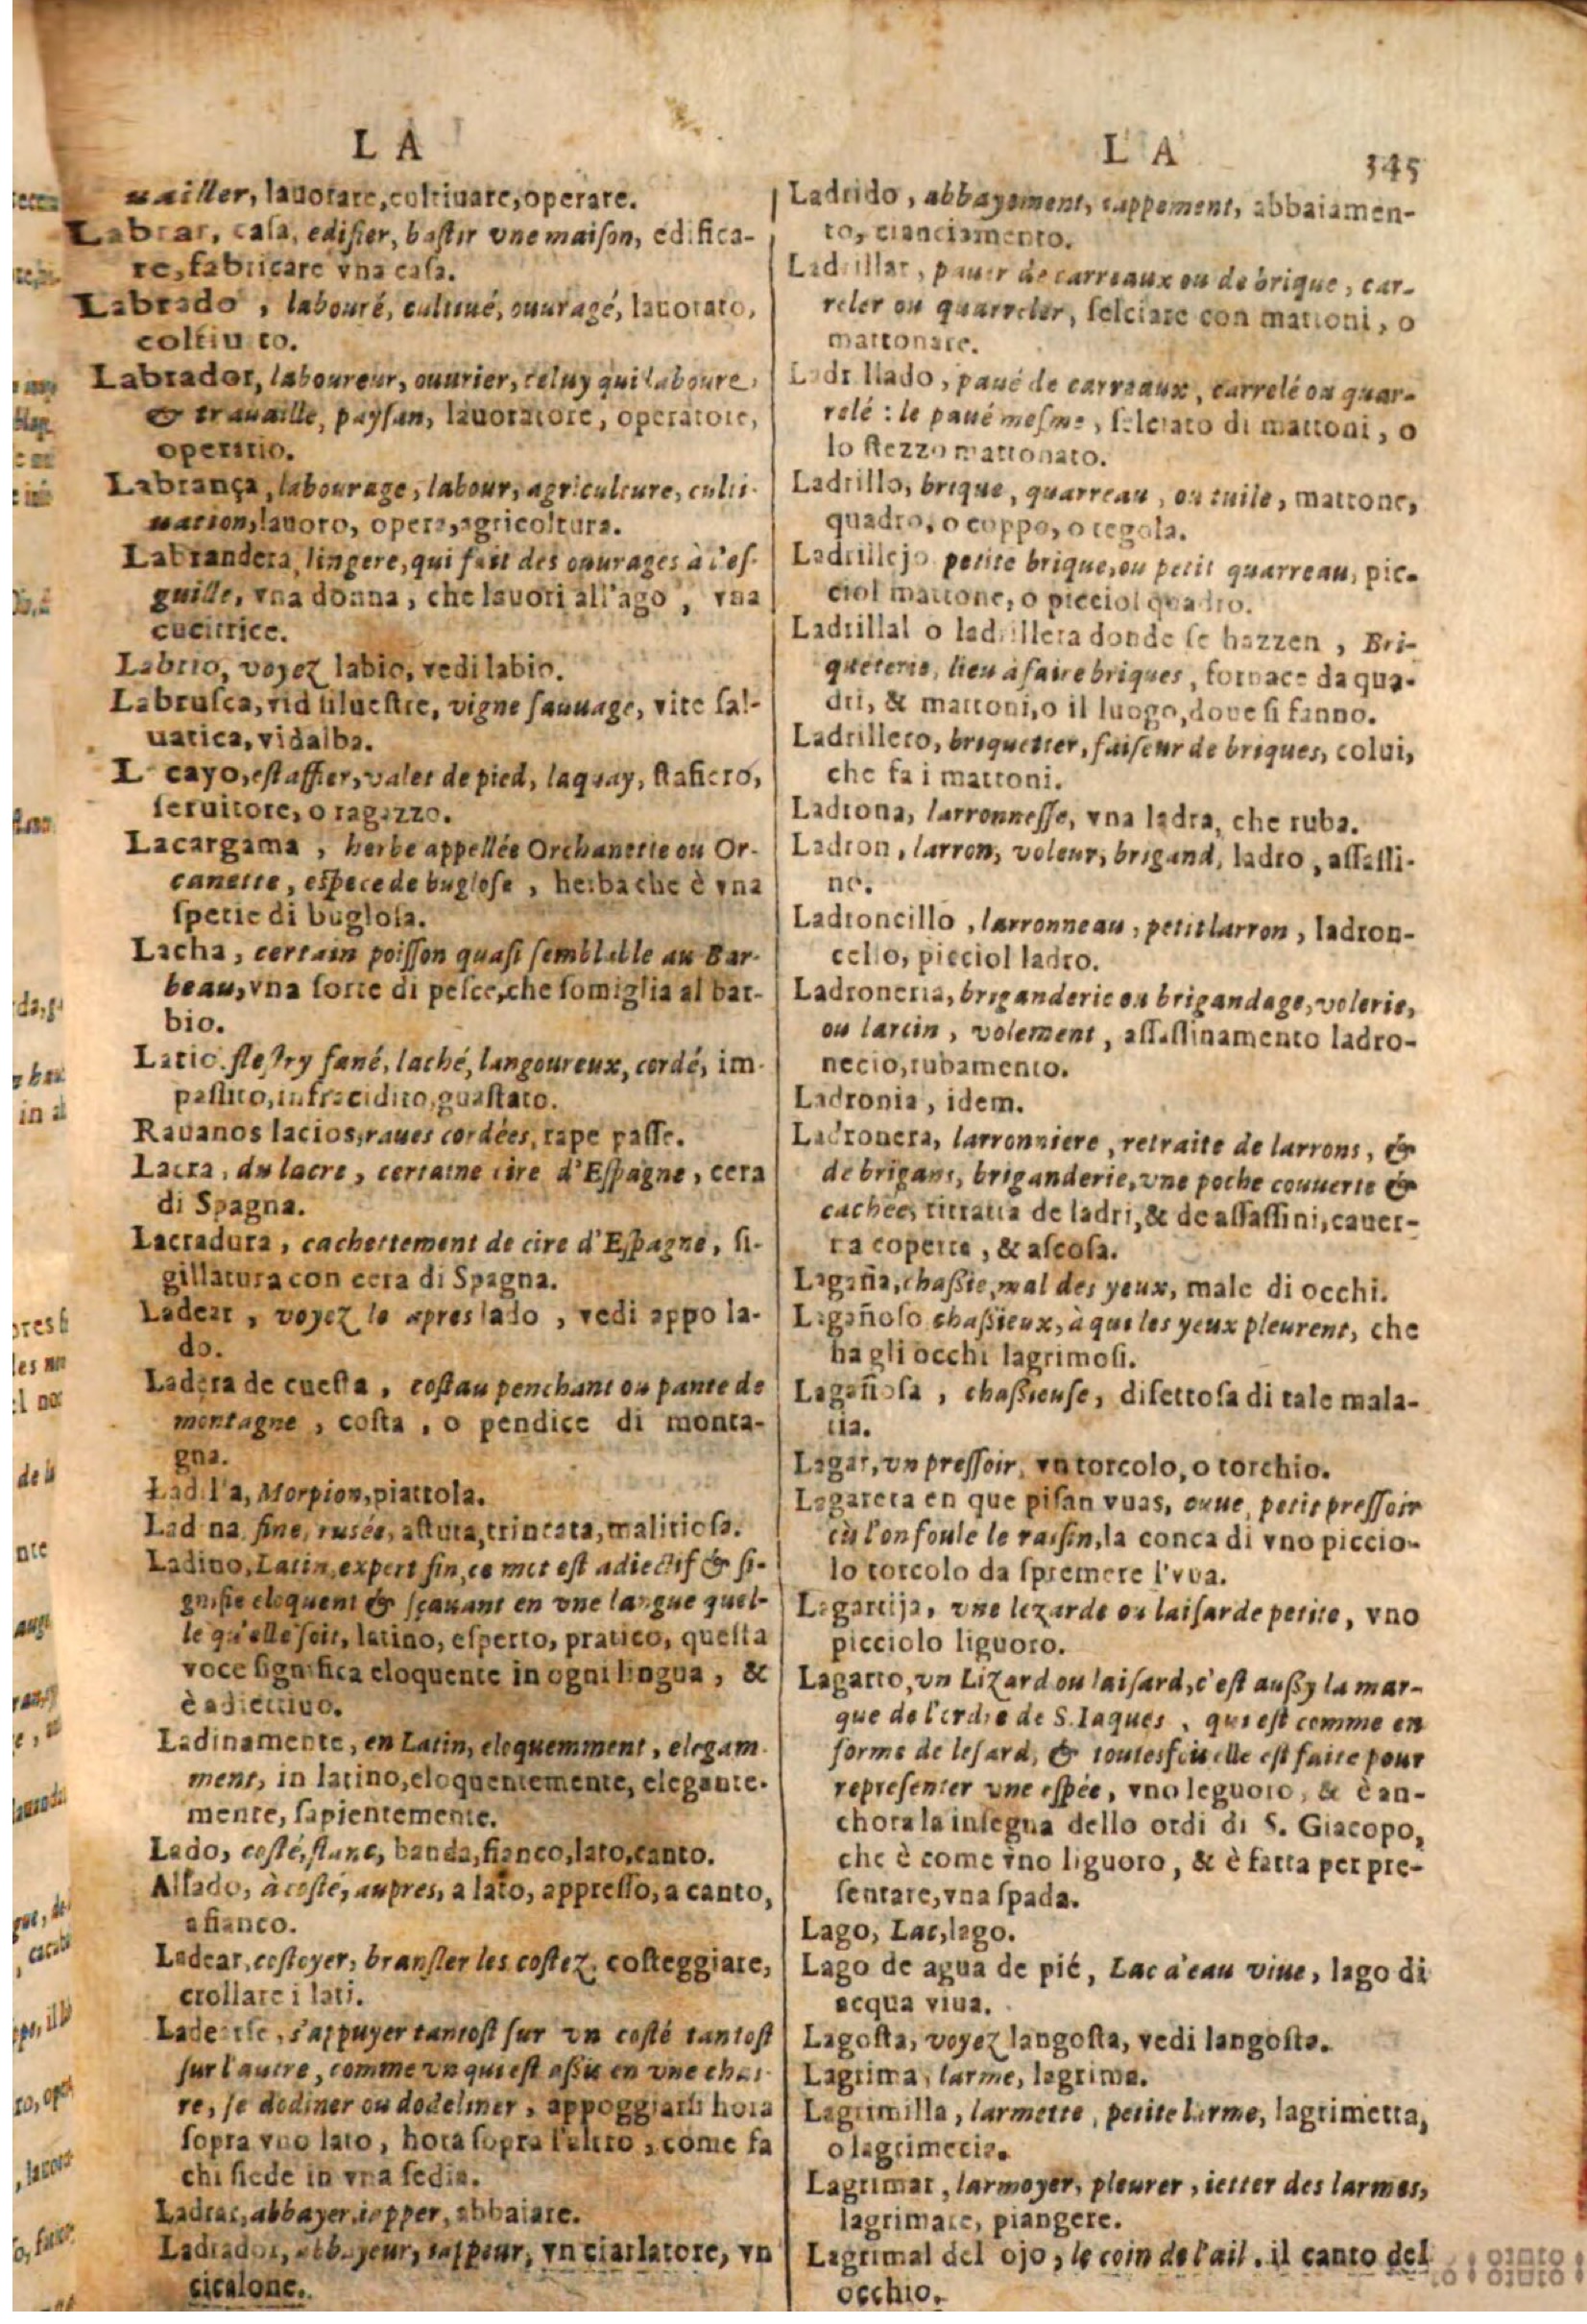 LA
uailler, lauorare, coltiuare, operare.
Labrar, casa, edifier, bastir vne maison, edifica-
re, fabricare vna casa.
Labrado, labouré, cultiué, ouuragé, lauorato,
coltiu to.
Labrador, laboureur, ouurier, celuy qui laboure,
& trauaille, paysan, lauoratore, operatore,
operatio.
Labrança, labourage, labour, agriculture, culti-
uation, lauoro, opera, agricoltura.
Labrandera, lingere, qui fait des ouurages à l'es-
guille, vna donna, che lauori all'ago, vna
cucitrice.
Labrio, voyez labio, vedi labio.
Labrusca, vid siluestre, vigne sauuage, vite sal-
uatica, vidalba.
L cayo, estaffier, valet de pied, laquay, stafiero,
seruitore, o ragazzo.
Lacargama, herbe appellée Orchanette ou Or-
canette, espece de buglose, herba che è vna
spetie di buglosa.
Lacha, certain poisson quasi semblable au Bar-
beau, vna sorte di pesce, che somiglia al bar-
bio.
Lacio, flestry fané, laché, langoureux, cordé, im-
passito, infracidito, guastato.
Rauanos lacios, raues cordées, rape passe.
Lacra, du lacre, certaine cire d'Espagne, cera
di Spagna.
Lacradura, cachettement de cire d'Espagne, si-
gillatura con cera di Spagna.
Ladear, voyez le apres lado, vedi appo la-
do.
Ladera de cuesta, costau penchant ou pante de
montagne, costa, o pendice di monta-
gna.
Lad l'a, Morpion, piattola.
Lad na fine, rusée, astuta, trincata, malitiosa.
Ladino, Latin, expert fin, ce mot est adiectif & si-
gnifie eloquent & sçauant en vne langue quel-
le qu'elle soit, latino, esperto, pratico, questa
voce significa eloquente in ogni lingua, &
è adiettiuo.
Ladinamente, en Latin, eloquemment, elegam-
ment, in latino, eloquentemente, elegante-
mente, sapientemente.
Lado, costé, flanc, banda, fianco, lato, canto.
Allado, à costé, aupres, a lato, appresso, a canto,
a fianco.
Ladear, costoyer, bransler les costez, costeggiare,
crollare i lati.
Ladearse, s'appuyer tantost sur vn costé tantost
sur l'autre, comme vn qui est assis en vne chai-
re, se dodiner ou dodeliner, appoggiarsi hora
sopra vno lato, hora sopra l'altro, come fa
chi siede in vna sedia.
Ladrar, abbayer, iapper, abbaiare.
Ladrador, abbayeur, iappeur, vn ciarlatore, vn
cicalone.
LA 345
Ladrido, abbayement, iappement, abbaiamen-
to, cianciamento.
Ladrillar, pauer de carreaux ou de brique, car-
reler ou quarreler, selciare con mattoni, o
mattonare.
Ladrillado, paué de carreaux, carrelé ou quar-
relé : le paué mesme, selciato di mattoni, o
lo stezzo mattonato.
Ladrillo, brique, quarreau, ou tuile, mattone,
quadro, o coppo, o tegola.
Ladrillejo petite brique, ou petit quarreau, pic-
ciol mattone, o picciol quadro.
Ladrillal o ladrillera donde se hazzen, Bri-
queterie, lieu à faire briques, fornace da qua-
dri, & mattoni, o il luogo, doue si fanno.
Ladrillero, briquettier, faiseur de briques, colui,
che fa i mattoni.
Ladrona, larronnesse, vna ladra, che ruba.
Ladron, larron, voleur, brigand, ladro, assassi-
no.
Ladroncillo, larronneau, petit larron, ladron-
cello, picciol ladro.
Ladroneria, briganderie ou brigandage, volerie,
ou larcin, volement, assassinamento ladro-
necio, rubamento.
Ladronia, idem.
Ladronera, larronniere, retraite de larrons, &
de brigans, briganderie, vne poche couuerte &
cachée, ritratta de ladri, & de assassini, cauer-
ra coperta, & ascosa.
Lagaña, chassie, mal des yeux, male di occhi.
Lagañoso chassieux, à qui les yeux pleurent, che
ha gli occhi lagrimosi.
Lagañosa, chassieuse, difettosa di tale mala-
tia.
Lagar, vn pressoir, vn torcolo, o torchio.
Lagareta en que pisan vuas, cuue, petit pressoir
où l'on foule le raisin, la conca di vno piccio-
lo torcolo da spremere l'vua.
Lagartija, vne lezarde ou laisarde petite, vno
picciolo liguoro.
Lagarto, vn Lizard ou laisard, c'est aussy la mar-
que de l'ordre de S. Iaques, qui est comme en
forme de lesard, & toutesfois elle est faite pour
representer vne espée, vno leguoro, & è an-
chora la insegna dello ordi di S. Giacopo,
che è come vno liguoro, & è fatta per pre-
sentare, vna spada.
Lago, Lac, lago.
Lago de agua de pié, Lac d'eau viue, lago di
acqua viua.
Lagosta, voyez langosta, vedi langosta.
Lagrima, larme, lagrima.
Lagrimilla, larmette, petite larme, lagrimetta,
o lagrimecia.
Lagrimar, larmoyer, pleurer, ietter des larmes,
lagrimare, piangere.
Lagrimal del ojo, le coin de l'ail. il canto del
occhio.